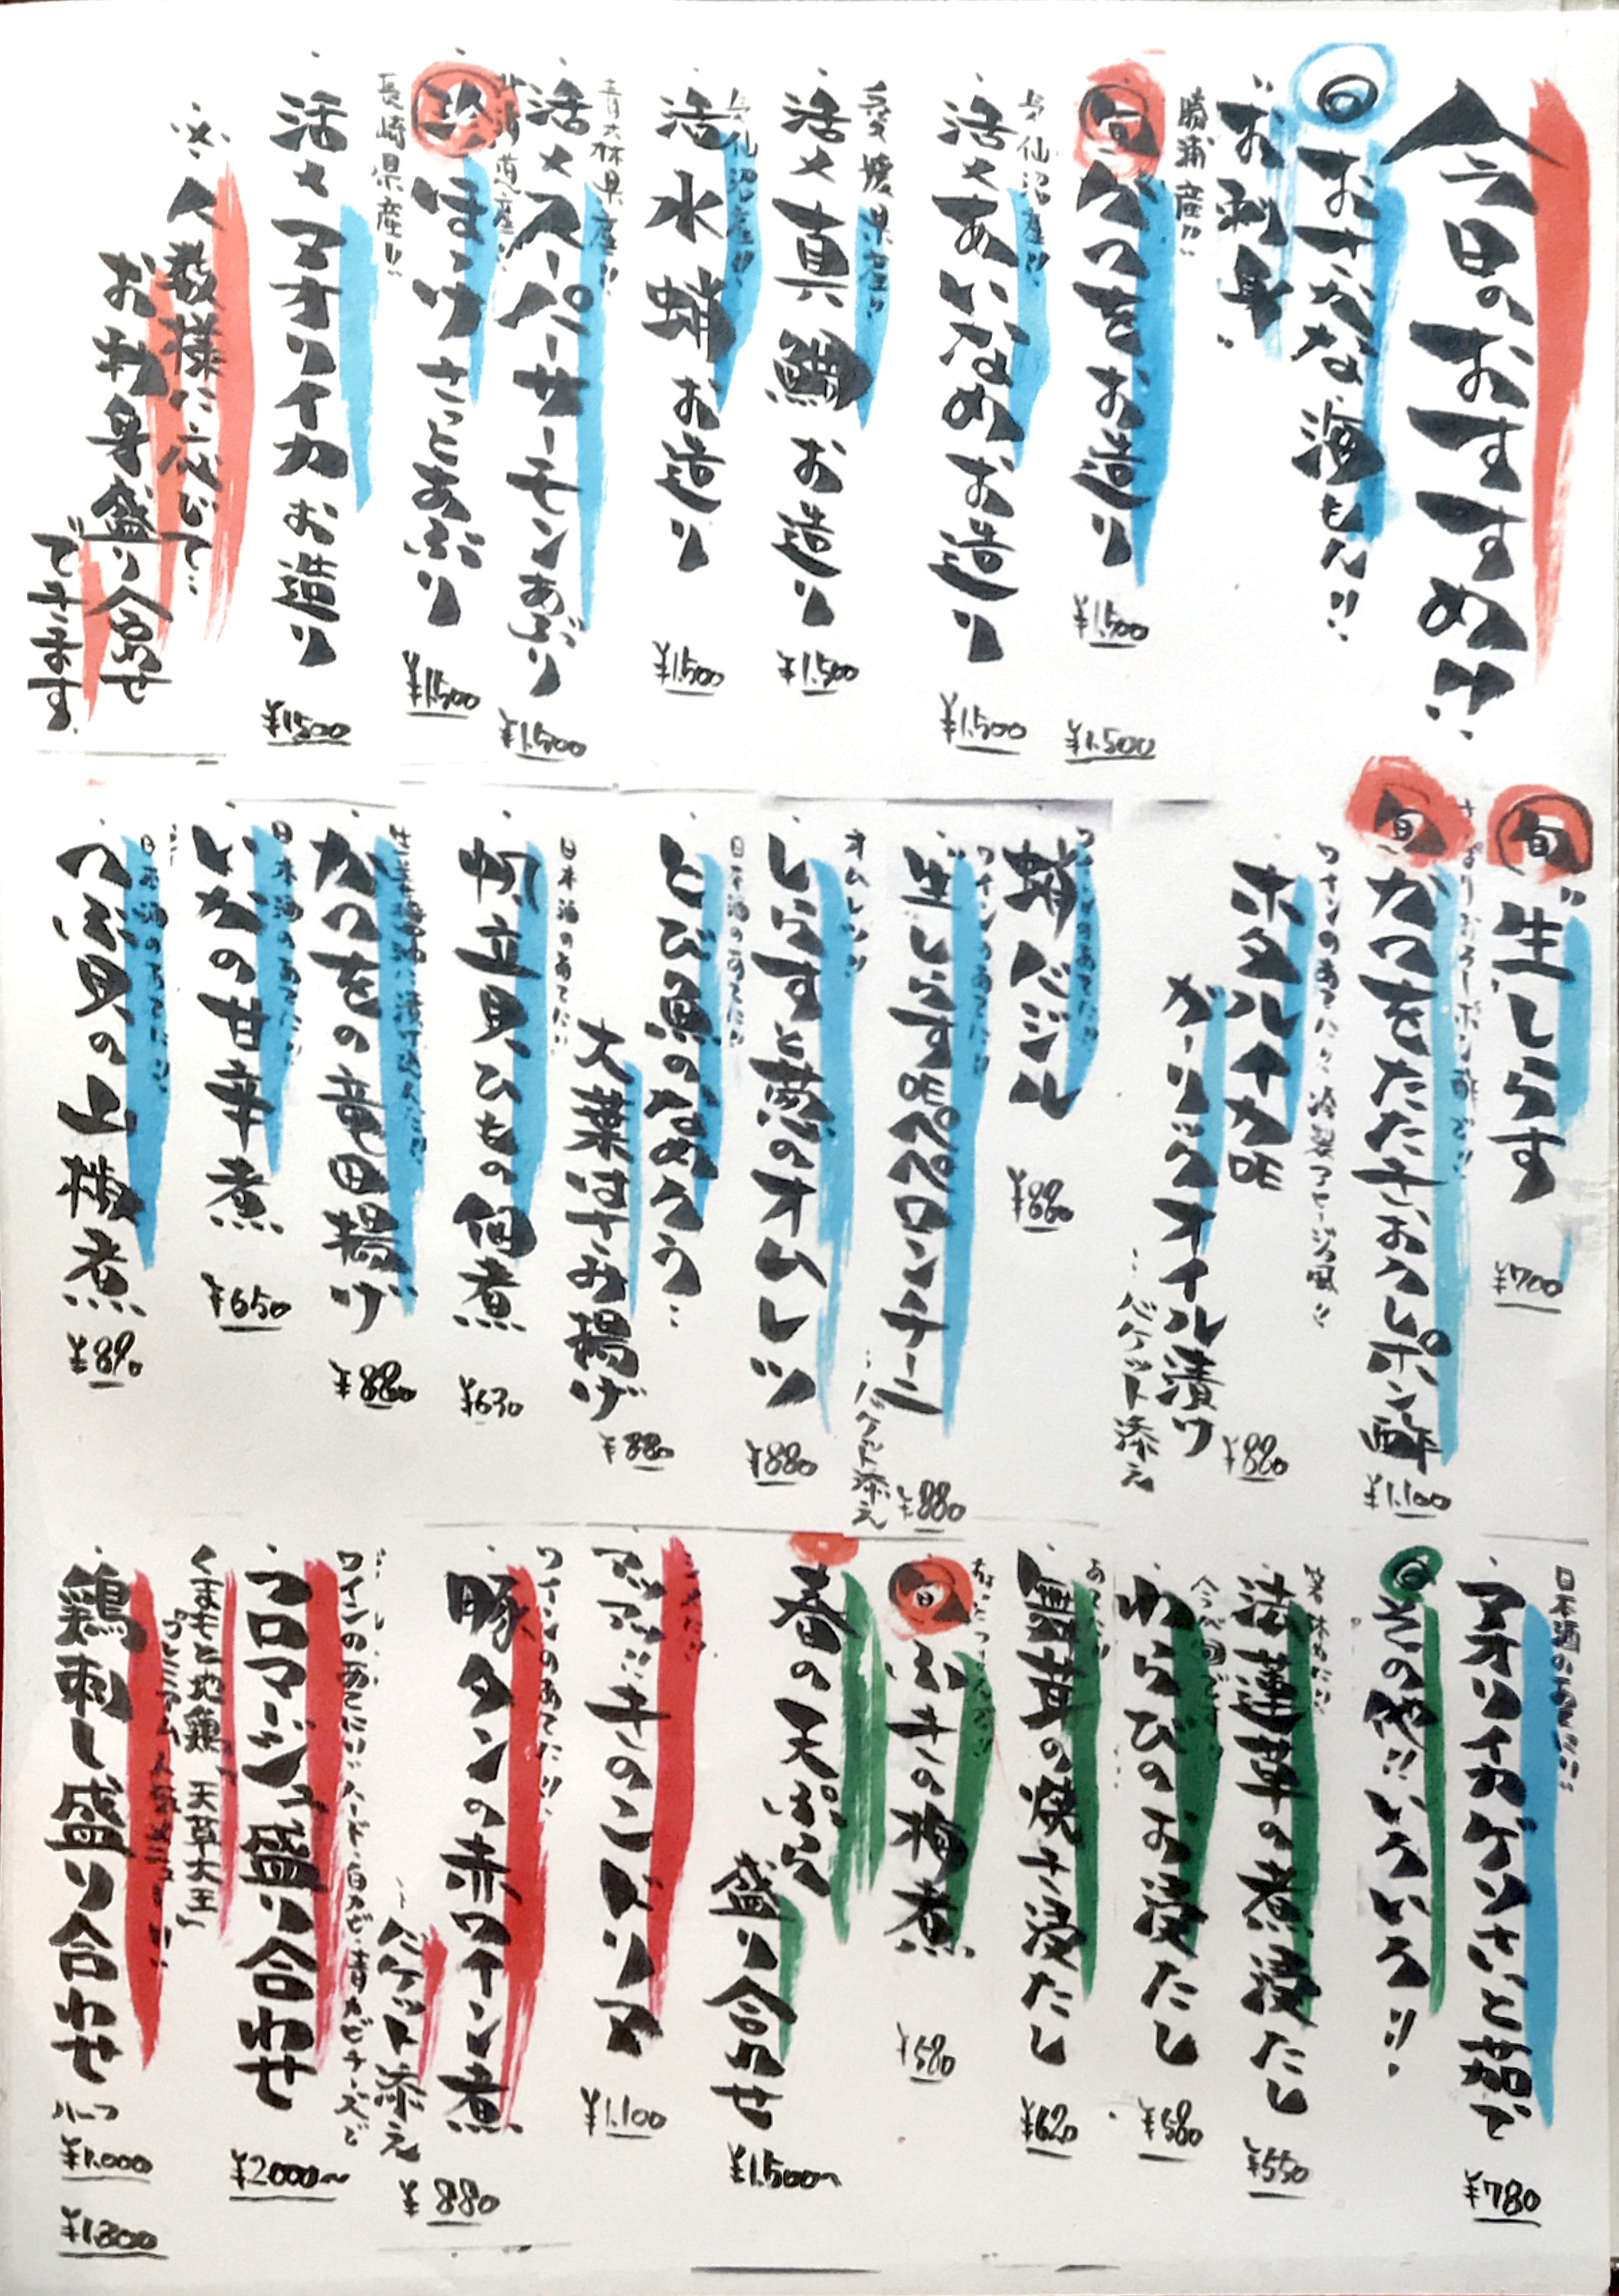 今日のおすすめ!!
◎おさかな、海もん!!
"お刺身"
勝浦産!!
旬 かつをお造り ¥1,500 ¥1,500
気仙沼産!!
・活〆あいなめお造り ¥1,500
愛媛県産!!
・活〆真鯛お造り ¥1,500
気仙沼産!!
・活水蛸お造り ¥1,500
青森県産!!
・活〆スーパーサーモンあぶり ¥1,500
北海道産!!
珍 ほっけさっとあぶり ¥1,500
長崎県産!!
・活〆アオリイカお造り ¥1,500
人数様に応じて…
お刺身盛り合わせ
できます。
旬 "生しらす ¥700
さっぱりおろしポン酢で!!
旬 かつをたたきおろしポン酢 ¥1,100
ワインのあてに!! 冷製アヒージョ風!!
ホタルイカDE
ガーリックオイル漬け
…バケット添え ¥880
ワインのあてに!!
蛸バジル ¥880
ワインのあてに!!
生しらすDEペペロンチーノ
…バケット添え ¥880
オムレツ!!
・しらすと葱のオムレツ ¥880
日本酒のあてに!!
・とび魚のなめろう…
大葉はさみ揚げ ¥880
日本酒のあてに!!
・帆立貝ひもの佃煮 ¥630
・かつをの竜田揚げ ¥880
日本酒のあてに!!
・いかの甘辛煮 ¥650
日本酒のあてに!!
・つぶ貝の山椒煮 ¥890
日本酒のあてに!!
・アオリイカゲソさっと茹で ¥780
◎その他!!いろいろ!!
箸休めに!!
・法蓮草の煮浸たし ¥550
・わらびのお浸たし ¥580
・舞茸の焼き浸たし ¥620
旬 ふきの梅煮 ¥580
・春の天ぷら
盛り合わせ ¥1,500〜
アツアツ!!牛のハトリア ¥1,100
ワインのあてに!!
・豚タンの赤ワイン煮
…バケット添え ¥880
ワインのあてに!!
・フロマージュ盛り合わせ ¥2,000〜
くまもと地鶏「天草大王」
・鶏刺し盛り合わせ
ハーフ ¥1,000
¥1,800